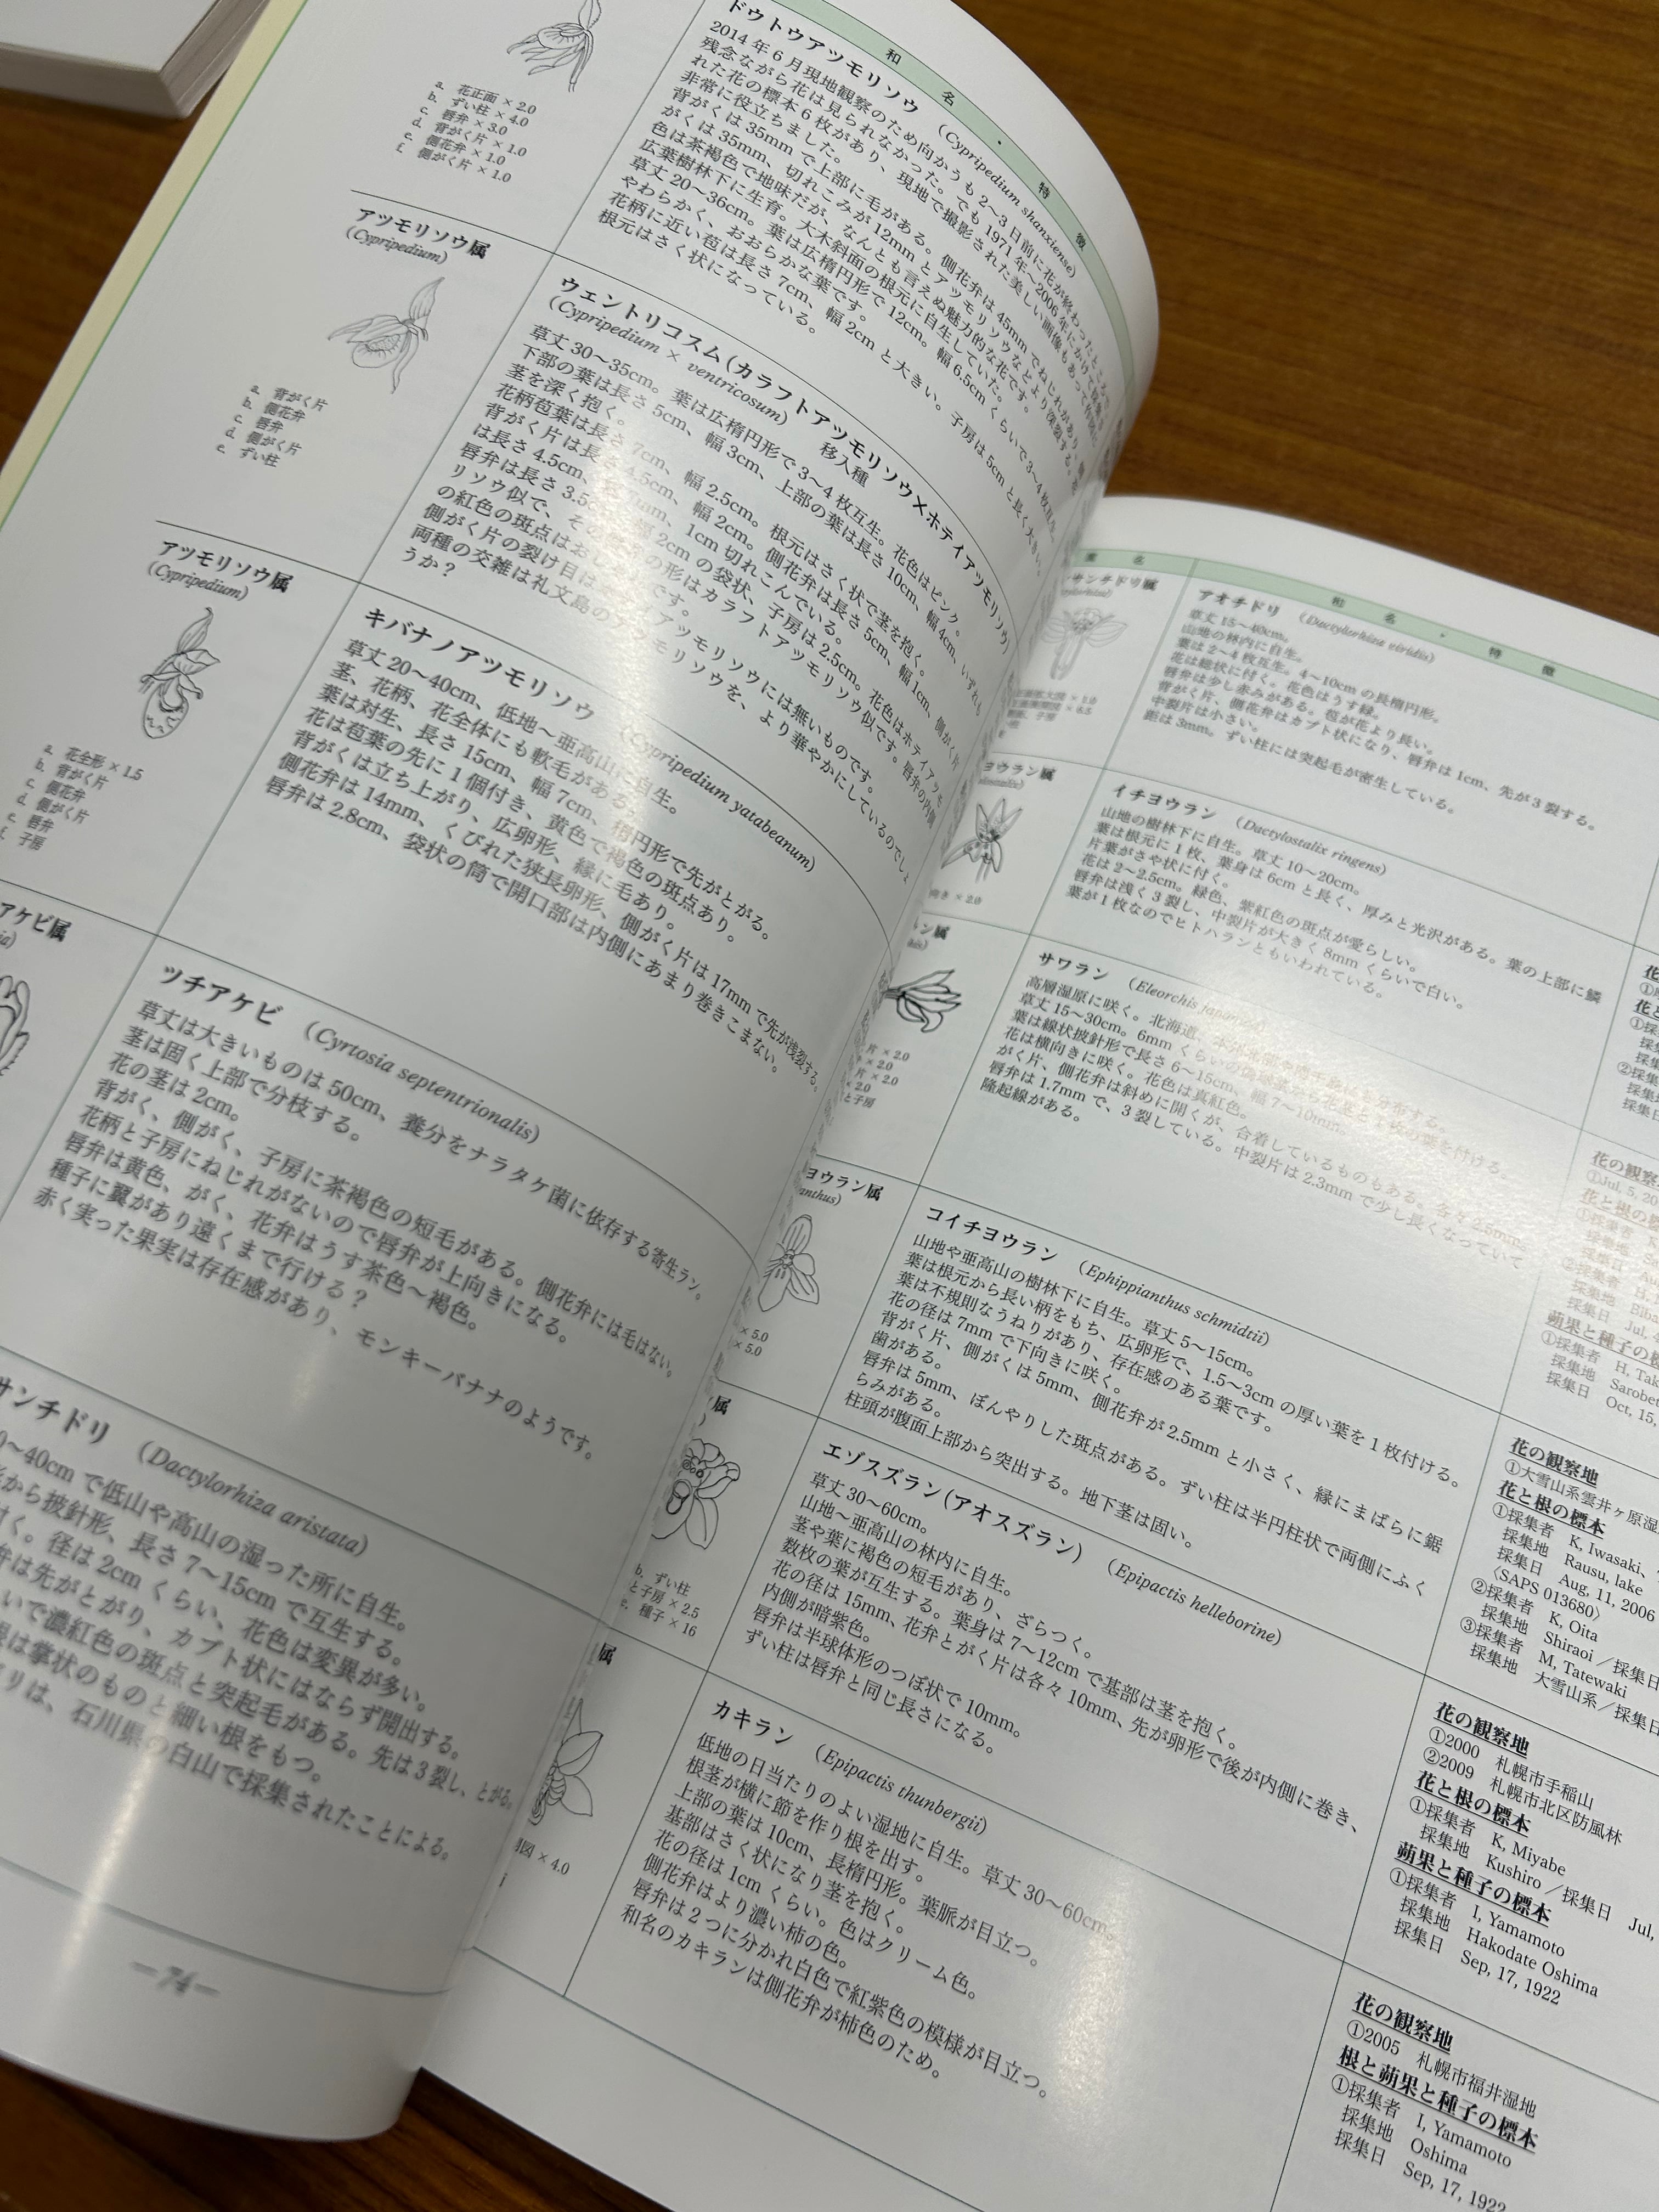 和 名 ・ 特 徴
a. 花正面 × 2.0
b. ずい柱 × 4.0
c. 唇弁 × 3.0
d. 背がく片 × 1.0
e. 側花弁 × 1.0
f. 側がく片 × 1.0
ドウトウアツモリソウ (Cypripedium shanxiense)
2014年6月現地観察のため向かうも、2〜3日前に花が終わったところで、
残念ながら花は見られなかった。でも1971年〜2006年にかけて採集さ
れた花の標本6枚があり、現地で撮影された美しい画像もあって
非常に役立ちました。
背がくは35mmで上部に毛がある。側花弁は45mmでねじれがあり、
がくは35mm、切れこみが12mmとアツモリソウなどより深裂する。
色は茶褐色で地味だが、なんとも言えぬ魅力的な花です。
広葉樹林下に生育。大木斜面の根元に自生していた。
草丈20〜36cm。葉は広楕円形で12cm。幅6.5cmくらいで3〜4枚互生。
やわらかく、おおらかな葉です。
花柄に近い苞は長さ7cm、幅2cmと大きい。子房は5cmと長く大きい。
根元はさく状になっている。
アツモリソウ属
(Cypripedium)
a. 背がく片
b. 側花弁
c. 唇弁
d. 側がく片
e. ずい柱
ウェントリコスム(カラフトアツモリソウ×ホテイアツモリソウ)
(Cypripedium × ventricosum) 移入種
草丈30〜35cm。葉は広楕円形で3〜4枚互生。花色はピンク。
下部の葉は長さ5cm、幅3cm、上部の葉は長さ10cm、幅4cm、いずれも
茎を深く抱く。
花柄苞葉は長さ7cm、幅2.5cm。根元はさく状で茎を抱く。
背がく片は長さ4.5cm、幅2cm。側花弁は長さ5cm、幅1cm、側がく片
は長さ4.5cm、幅1cm、1cm切れこんでいる。
唇弁は長さ3.5cm、幅2cmの袋状、子房は2.5cm。花色はホテイアツモ
リソウ似で、その他の形はカラフトアツモリソウ似です。唇弁の内側
の紅色の斑点はホテイアツモリソウには無いものです。
側がく片の裂け目は
両種の交雑は礼文島のアツモリソウを、より華やかにしているのでしょ
うか？
アツモリソウ属
(Cypripedium)
a. 花全形 × 1.5
b. 背がく片
c. 側花弁
d. 側がく片
e. 唇弁
f. 子房
キバナノアツモリソウ (Cypripedium yatabeanum)
草丈20〜40cm、低地〜亜高山に自生。
茎、花柄、花全体にも軟毛がある。
葉は対生、長さ15cm、幅7cm、楕円形で先がとがる。
花は苞葉の先に1個付き、黄色で褐色の斑点あり。
背がくは立ち上がり、広卵形、縁に毛あり。
側花弁は14mm、くびれた狭長卵形、側がく片は17mmで先が浅裂する。
唇弁は2.8cm、袋状の筒で開口部は内側にあまり巻きこまない。
アケビ属
ツチアケビ (Cyrtosia septentrionalis)
草丈は大きいものは50cm、養分をナラタケ菌に依存する寄生ラン。
茎は固く上部で分枝する。
花の茎は2cm。
背がく、側がく、子房に茶褐色の短毛がある。側花弁には毛はない。
花柄と子房にねじれがないので唇弁が上向きになる。
唇弁は黄色、がく、花弁はうす茶色〜褐色。
種子に翼があり遠くまで行ける？
赤く実った果実は存在感があり、モンキーバナナのようです。
サンチドリ (Dactylorhiza aristata)
0〜40cmで低山や高山の湿った所に自生。
から披針形、長さ7〜15cmで互生する。
く。径は2cmくらい、花色は変異が多い。
弁は先がとがり、カブト状にはならず開出する。
いで濃紅色の斑点と突起毛がある。先は3裂し、とがる。
根は掌状のものと細い根をもつ。
リは、石川県の白山で採集されたことによる。
—74—
和 名 ・ 特 徴
サンチドリ属
アオチドリ (Dactylorhiza viridis)
草丈15〜40cm。
山地の林内に自生。
葉は2〜4枚互生。4〜10cmの長楕円形。
花は総状に付く。花色はうす緑。
唇弁は少し赤みがある。苞が花より長い。
背がく片、側花弁はカブト状になり、唇弁は1cm、先が3裂する。
中裂片は小さい。
距は3mm。ずい柱には突起毛が密生している。
ヨウラン属
向き × 2.0
イチヨウラン (Dactylostalix ringens)
山地の樹林下に自生。草丈10〜20cm。
葉は根元に1枚、葉身は6cmと長く、厚みと光沢がある。葉の上部に鱗
片葉がさや状に付く。
花は2〜2.5cm。緑色、紫紅色の斑点が愛らしい。
唇弁は浅く3裂し、中裂片が大きく8mmくらいで白い。
葉が1枚なのでヒトハランともいわれている。
ラン属
片 × 2.0
× 2.0
片 × 2.0
× 2.0
と子房
サワラン (Eleorchis japonica)
高層湿原に咲く。北海道、
草丈15〜30cm。6mmくらいの
葉は線状披針形で長さ6〜15cm、幅7〜10mm。
花は横向きに咲く。花色は真紅色。
がく片、側花弁は斜めに開くが、合着しているものもある。各々2.5mm。
唇弁は1.7mmで、3裂している。中裂片は2.3mmで少し長くなっていて
隆起線がある。
ヨウラン属
× 5.0
× 5.0
コイチヨウラン (Ephippianthus schmidtii)
山地や亜高山の樹林下に自生。草丈5〜15cm。
葉は根元から長い柄をもち、広卵形で、1.5〜3cmの厚い葉を1枚付ける。
葉は不規則なうねりがあり、存在感のある葉です。
花の径は7mmで下向きに咲く。
背がく片、側がくは5mm、側花弁が2.5mmと小さく、縁にまばらに鋸
歯がある。
唇弁は5mm、ぼんやりした斑点がある。ずい柱は半円柱状で両側にふく
らみがある。
柱頭が腹面上部から突出する。地下茎は固い。
属
b. ずい柱
と子房 × 2.5
e. 種子 × 16
エゾスズラン(アオスズラン) (Epipactis helleborine)
草丈30〜60cm。
山地〜亜高山の林内に自生。
茎や葉に褐色の短毛があり、ざらつく。
数枚の葉が互生する。葉身は7〜12cmで基部は茎を抱く。
花の径は15mm、花弁とがく片は各々10mm、先が卵形で後が内側に巻き、
内側が暗紫色。
唇弁は半球体形のつぼ状で10mm。
ずい柱は唇弁と同じ長さになる。
属
図 × 4.0
カキラン (Epipactis thunbergii)
低地の日当たりのよい湿地に自生。草丈30〜60cm。
根茎が横に節を作り根を出す。
上部の葉は10cm、長楕円形。葉脈が目立つ。
基部はさく状になり茎を抱く。
花の径は1cmくらい。色はクリーム色。
側花弁はより濃い柿の色。
唇弁は2つに分かれ白色で紅紫色の模様が目立つ。
和名のカキランは側花弁が柿色のため。
花の観察
①Jul, 5, 20
花と根の
①採集者
採集地
採集日
②採集者
採集地 Biba
採集日 Jul, 4
蒴果と種子の標
①採集者 H, Tak
採集地 Sarobet
採集日 Oct, 15,
花の観察地
①大雪山系雲井ヶ原湿
花と根の標本
①採集者 K, Iwasaki,
採集地 Rausu, lake
採集日 Aug, 11, 2006
〈SAPS 013680〉
②採集者 K, Oita
採集地 Shiraoi／採集日
③採集者 M, Tatewaki
採集地 大雪山系／採集日
花の観察地
①2000 札幌市手稲山
②2009 札幌市北区防風林
花と根の標本
①採集者 K, Miyabe
採集地 Kushiro／採集日 Jul,
蒴果と種子の標本
①採集者 I, Yamamoto
採集地 Hakodate Oshima
採集日 Sep, 17, 1922
花の観察地
①2005 札幌市福井湿地
根と蒴果と種子の標本
①採集者 I, Yamamoto
採集地 Oshima
採集日 Sep, 17, 1922